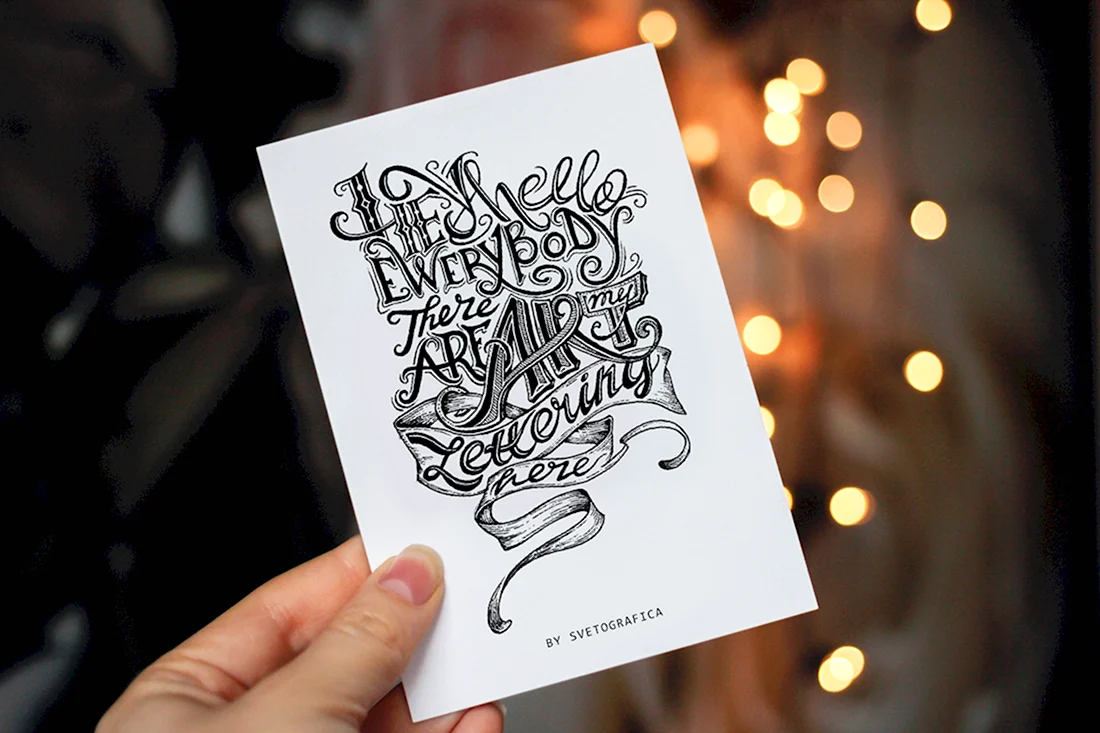 HEY hello
EWERYBODY
There
ARE ART my
Lettering
here
BY SVETOGRAFICA